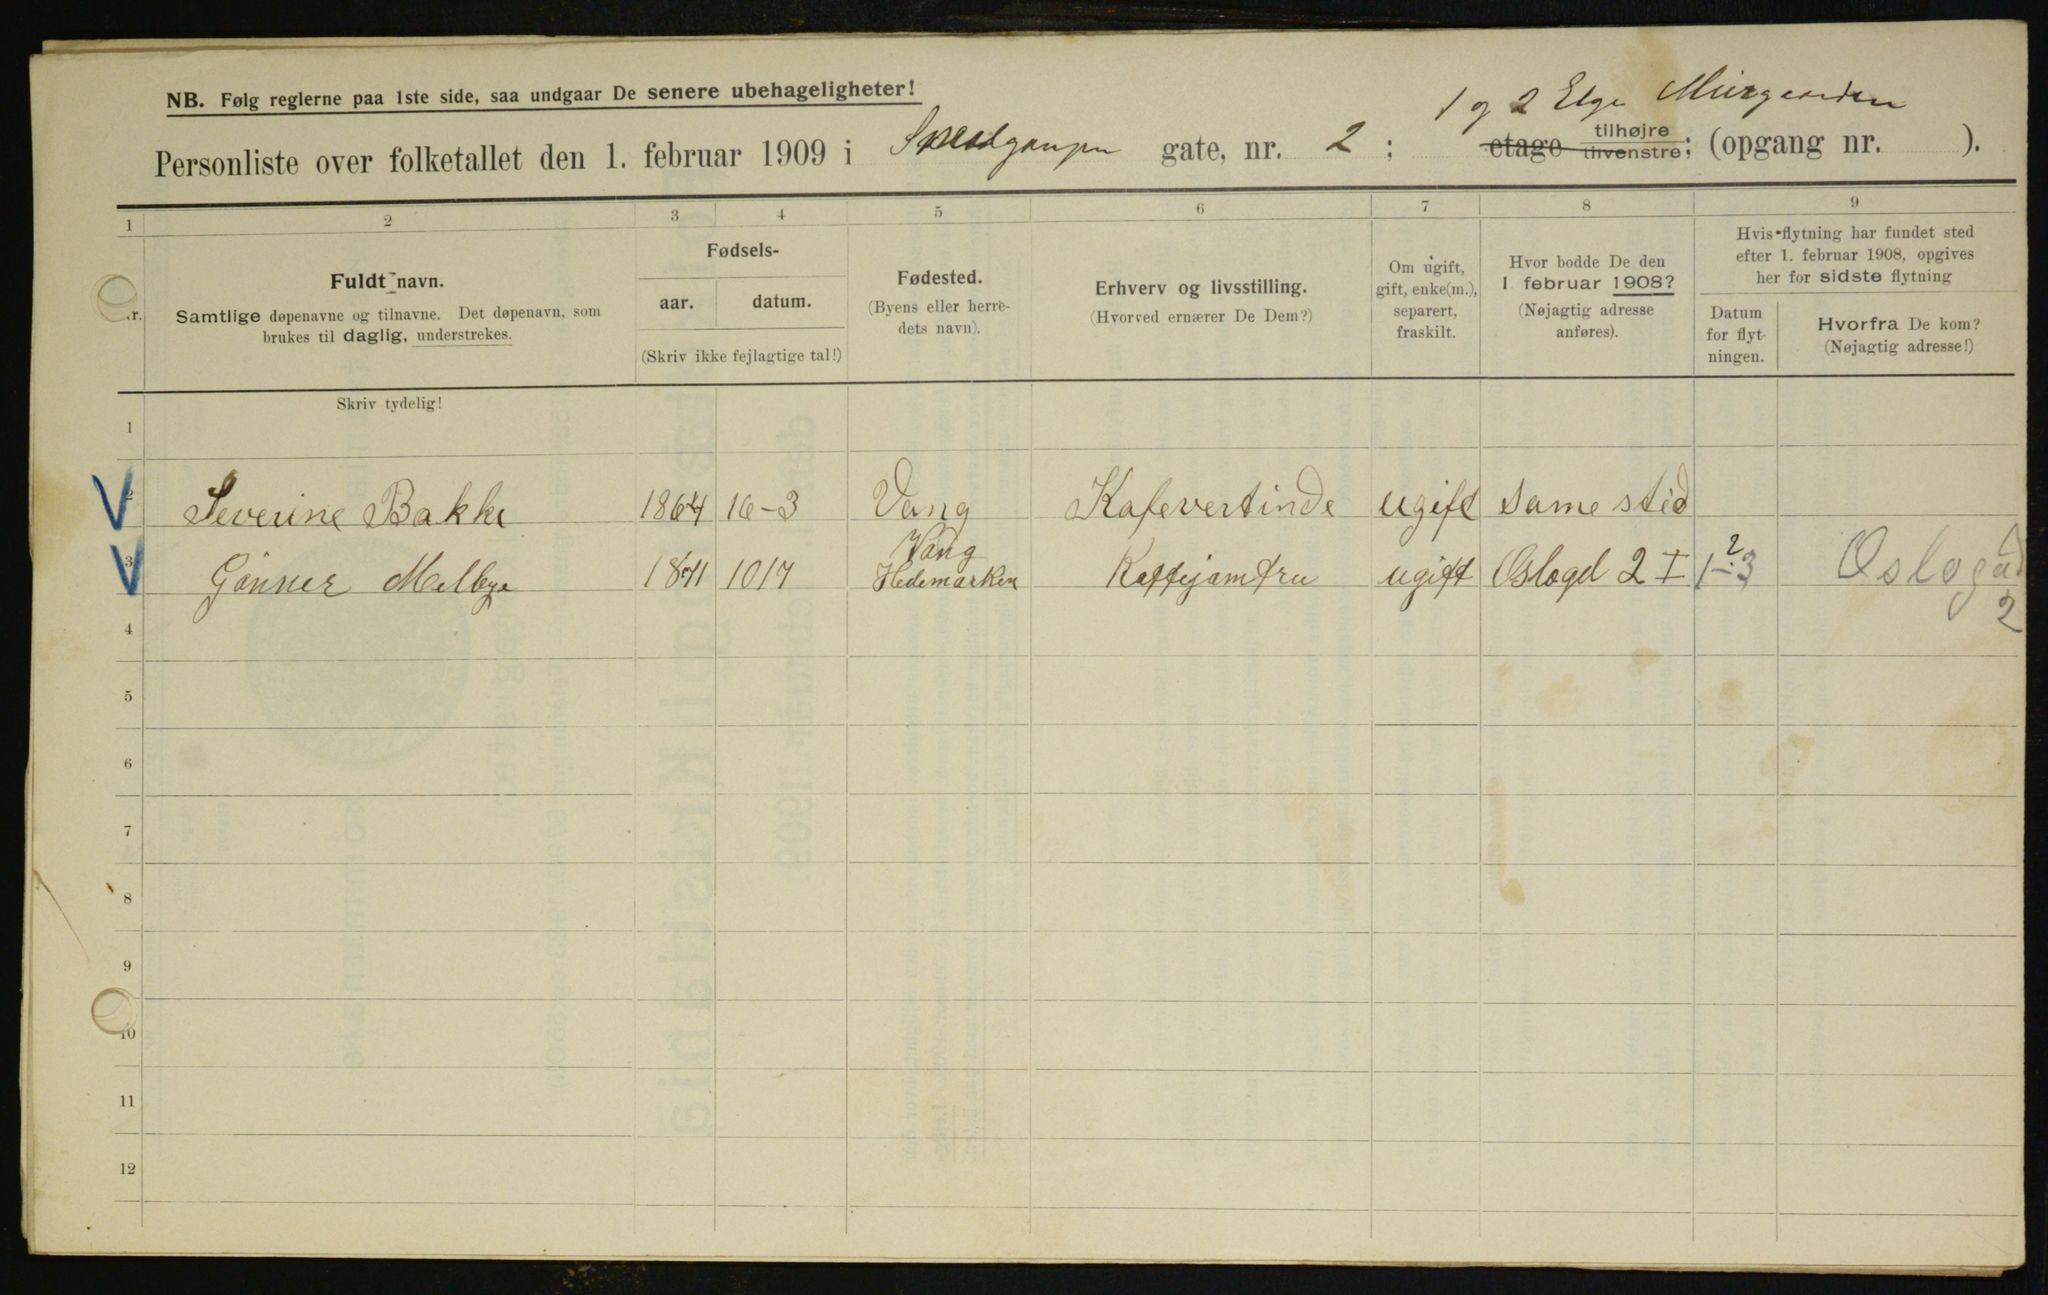 NB. Følg reglerne paa 1ste side, saa undgaar De senere ubehageligheter!
1 og 2 Etge Murgaarden
Personliste over folketallet den 1. februar 1909 i gate, nr. 2; etage tilhøjre tilvenstre; (opgang nr. ).
1 2 3 4 5 6 7 8 9
Nr.
Fuldt navn.
Samtlige døpenavne og tilnavne. Det døpenavn, som
brukes til daglig, understrekes.
Fødsels-
aar. datum.
(Skriv ikke fejlagtige tal!)
Fødested.
(Byens eller herre-
dets navn).
Erhverv og livsstilling.
(Hvorved ernærer De Dem?)
Om ugift,
gift, enke(m.),
separert,
fraskilt.
Hvor bodde De den
1 februar 1908?
(Nøjagtig adresse
anføres).
Hvis flytning har fundet sted
efter 1. februar 1908, opgives
her for sidste flytning
Datum
for flyt-
ningen.
Hvorfra De kom?
(Nøjagtig adresse!)
Skriv tydelig!
1
2 Severine Bakke 1864 16-3 Vang Kafevertinde ugift same sted
3 Gønner Melbye 1871 10/7 Vang Hedemarken Kaffejomfru ugift Oslogd 2 I 1-3 Oslogad 2
4
5
6
7
8
9
10
11
12